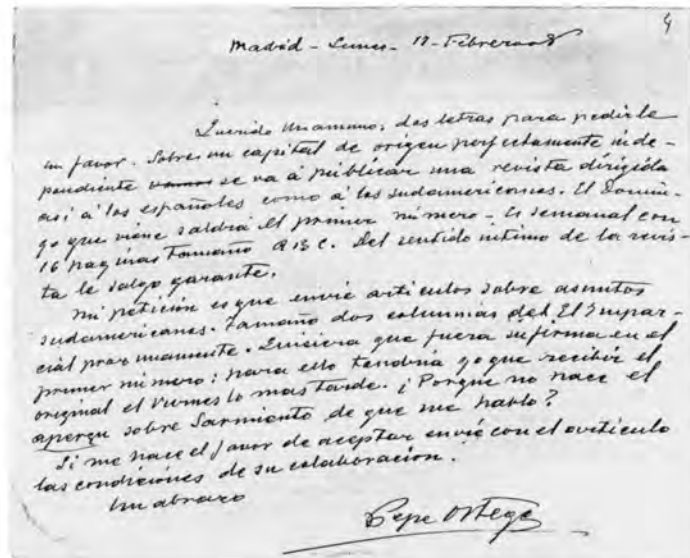 4
Madrid - Lunes - 17 - Febrero 08
Querido Unamuno: dos letras para pedirle
un favor. Sobre un capital de origen perfectamente inde-
pendiente vamos se va á publicar una revista dirigida
asi á los españoles como á los sudamericanos. El Domin-
go que viene saldrá el primer número - Es semanal con
16 paginas tamaño A B C. Del sentido intimo de la revis-
ta le salgo garante.
Mi petición es que envie articulos sobre asuntos
sudamericanos. Tamaño dos columnas del El Impar-
cial proximamente. Quisiera que fuera su firma en el
primer número: para ello tendria yo que recibir el
original el viernes lo mas tarde. ¿Porque no hace el
aperçu sobre Sarmiento de que me habló?
Si me hace el favor de aceptar envie con el articulo
las condiciones de su colaboración.
Un abrazo
Pepe Ortega